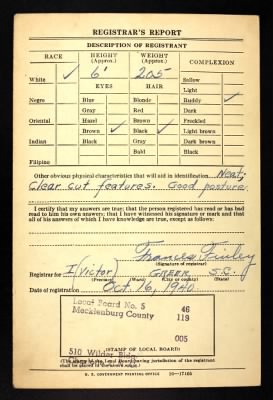 REGISTRAR'S REPORT
DESCRIPTION OF REGISTRANT
RACE HEIGHT (Approx.) WEIGHT (Approx.) COMPLEXION
White ✓ 6' 205 Sallow
EYES HAIR Light
Negro Blue Blonde Ruddy ✓
Gray Red Dark
Oriental Hazel Brown Freckled
Brown ✓ Black ✓ Light brown
Indian Black Gray Dark brown
Bald Black
Filipino
Other obvious physical characteristics that will aid in identification Neat,
Clear cut features. Good posture.
I certify that my answers are true; that the person registered has read or has had
read to him his own answers; that I have witnessed his signature or mark and that
all of his answers of which I have knowledge are true, except as follows:
Frances Finley
(Signature of registrar)
Registrar for I (Victor) GREER S.C.
(Precinct) (Ward) (City or county) (State)
Date of registration Oct. 16, 1940
Local Board No. 5 46
Mecklenburg County 119
005
510 Wilder Bldg.
(STAMP OF LOCAL BOARD)
(The stamp of the Local Board having jurisdiction of the registrant
shall be placed in the above space.)
U. S. GOVERNMENT PRINTING OFFICE 16—17105